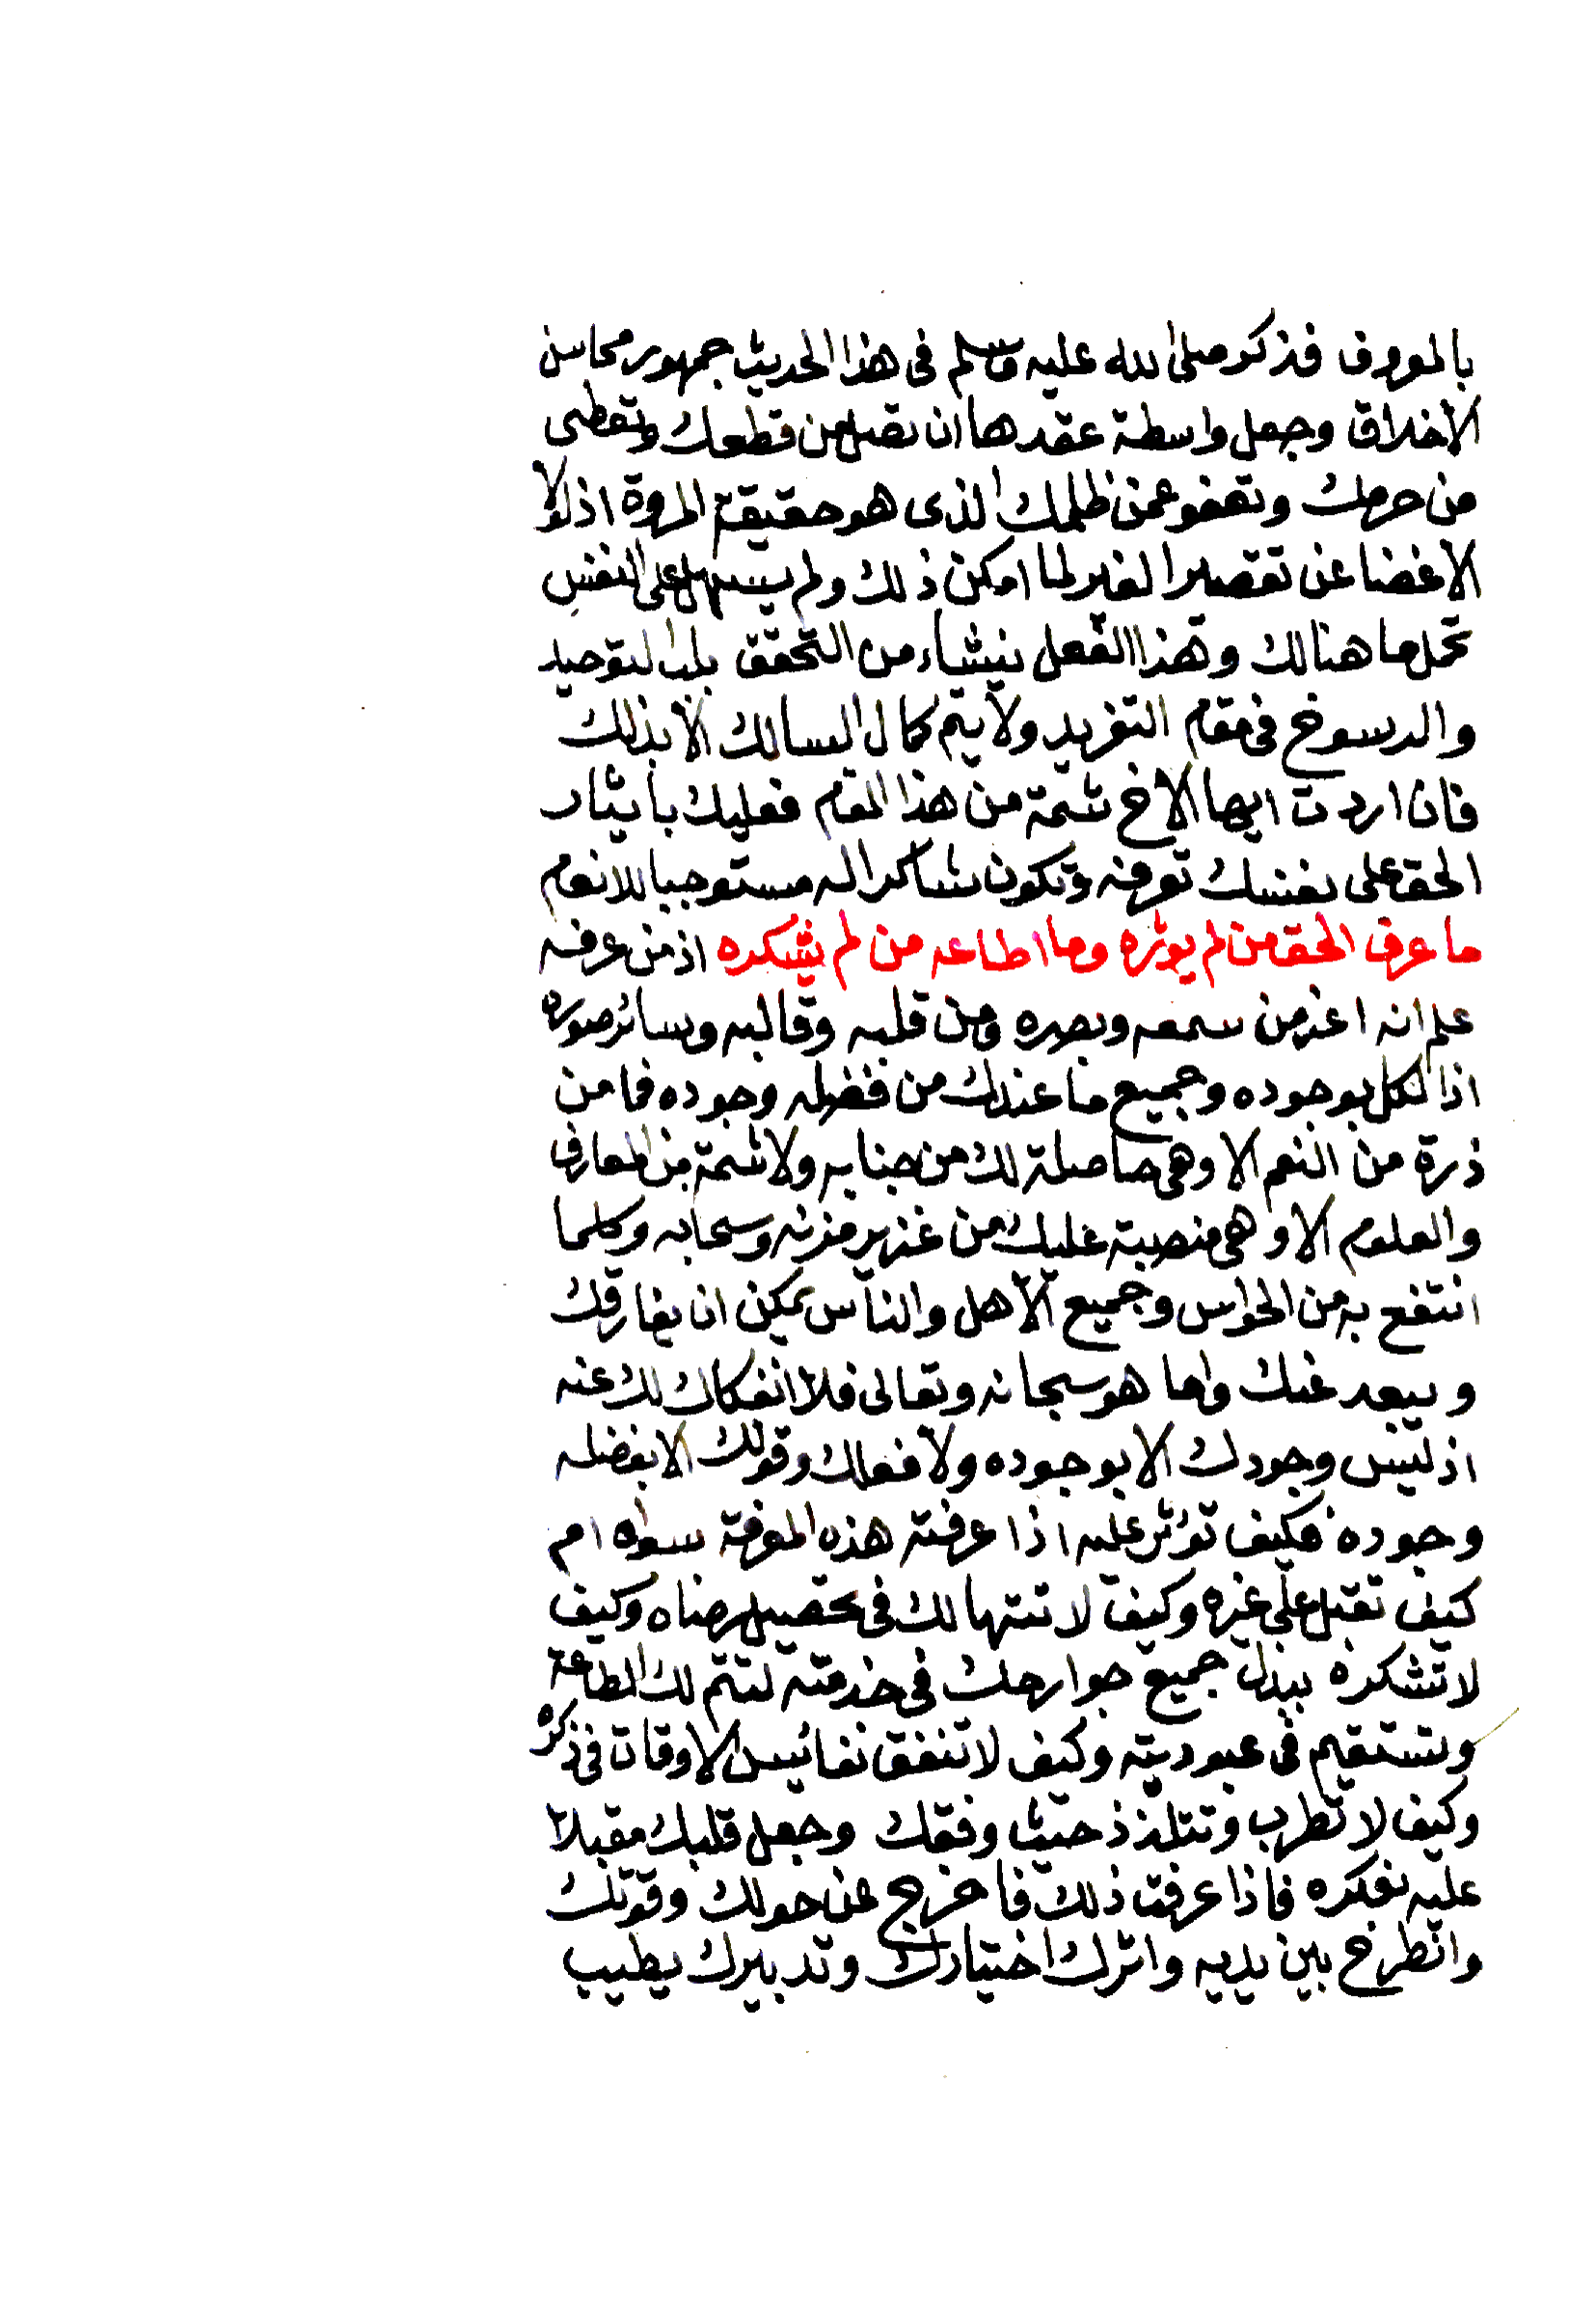 بالمعروف فذكر صلى الله عليه وسلم في هذا الحديث جمهور محاسن
الاخلاق وجعل واسطة عقدها ان تصل من قطعك وتعطى
من حرمك وتعفو عمن ظلمك الذى هو حقيقة المروة اذ لولا
الاغضا عن تقصير الغير لما امكن ذلك ولم يسهل على النفس
تحمل ما هنالك وهذا الفعل ينشاء من التحقق بلب التوحيد
والرسوخ في مقام التفريد ولا يتم كمال السالك الا بذلك
فان اردت ايها الاخ شمة من هذا المقام فعليك بايثار
الحق على نفسك تعرفه وتكون شاكرا له مستوجبا للانعام
ما عرف الحق من لم يوثره وما اطاعه من لم يشكره اذ من عرفه
علم انه اعز من سمعه وبصره ومن قلبه وقالبه وسائر صوره
اذ الكل بوجوده وجميع ما عندك من فضله وجوده فما من
ذرة من النعم الا وهى حاصلة لك من جنابه ولا شمة من المعارف
والعلوم الا وهى منصبة عليك من غزير مزنه وسحابه وكلما
انتفع به من الحواس وجميع الاهل والناس يمكن ان يفارقك
ويبعد عنك واما هو سبحانه وتعالى فلا انفكاك لك عنه
اذ ليس وجودك الا بوجوده ولا فعلك وقولك الا بفضله
وجوده فكيف توثر عليه اذا عرفته هذه المعرفة سواه ام
كيف تقبل على غيره وكيف لا تتهالك في تحصيل رضاه وكيف
لا تشكره ببذل جميع جوارحك في خدمته لتتم لك الطاعة
وتستقيم في عبوديته وكيف لا تنفق نفائس الاوقات في ذكره
وكيف لا تطرب وتتلذذ حيث وفقك وجعل قلبك مقبلا
عليه بفكره فاذا عرفت ذلك فاخرج عن حولك وقوتك
وانطرح بين يديه واترك اختيارك وتدبيرك يطيب